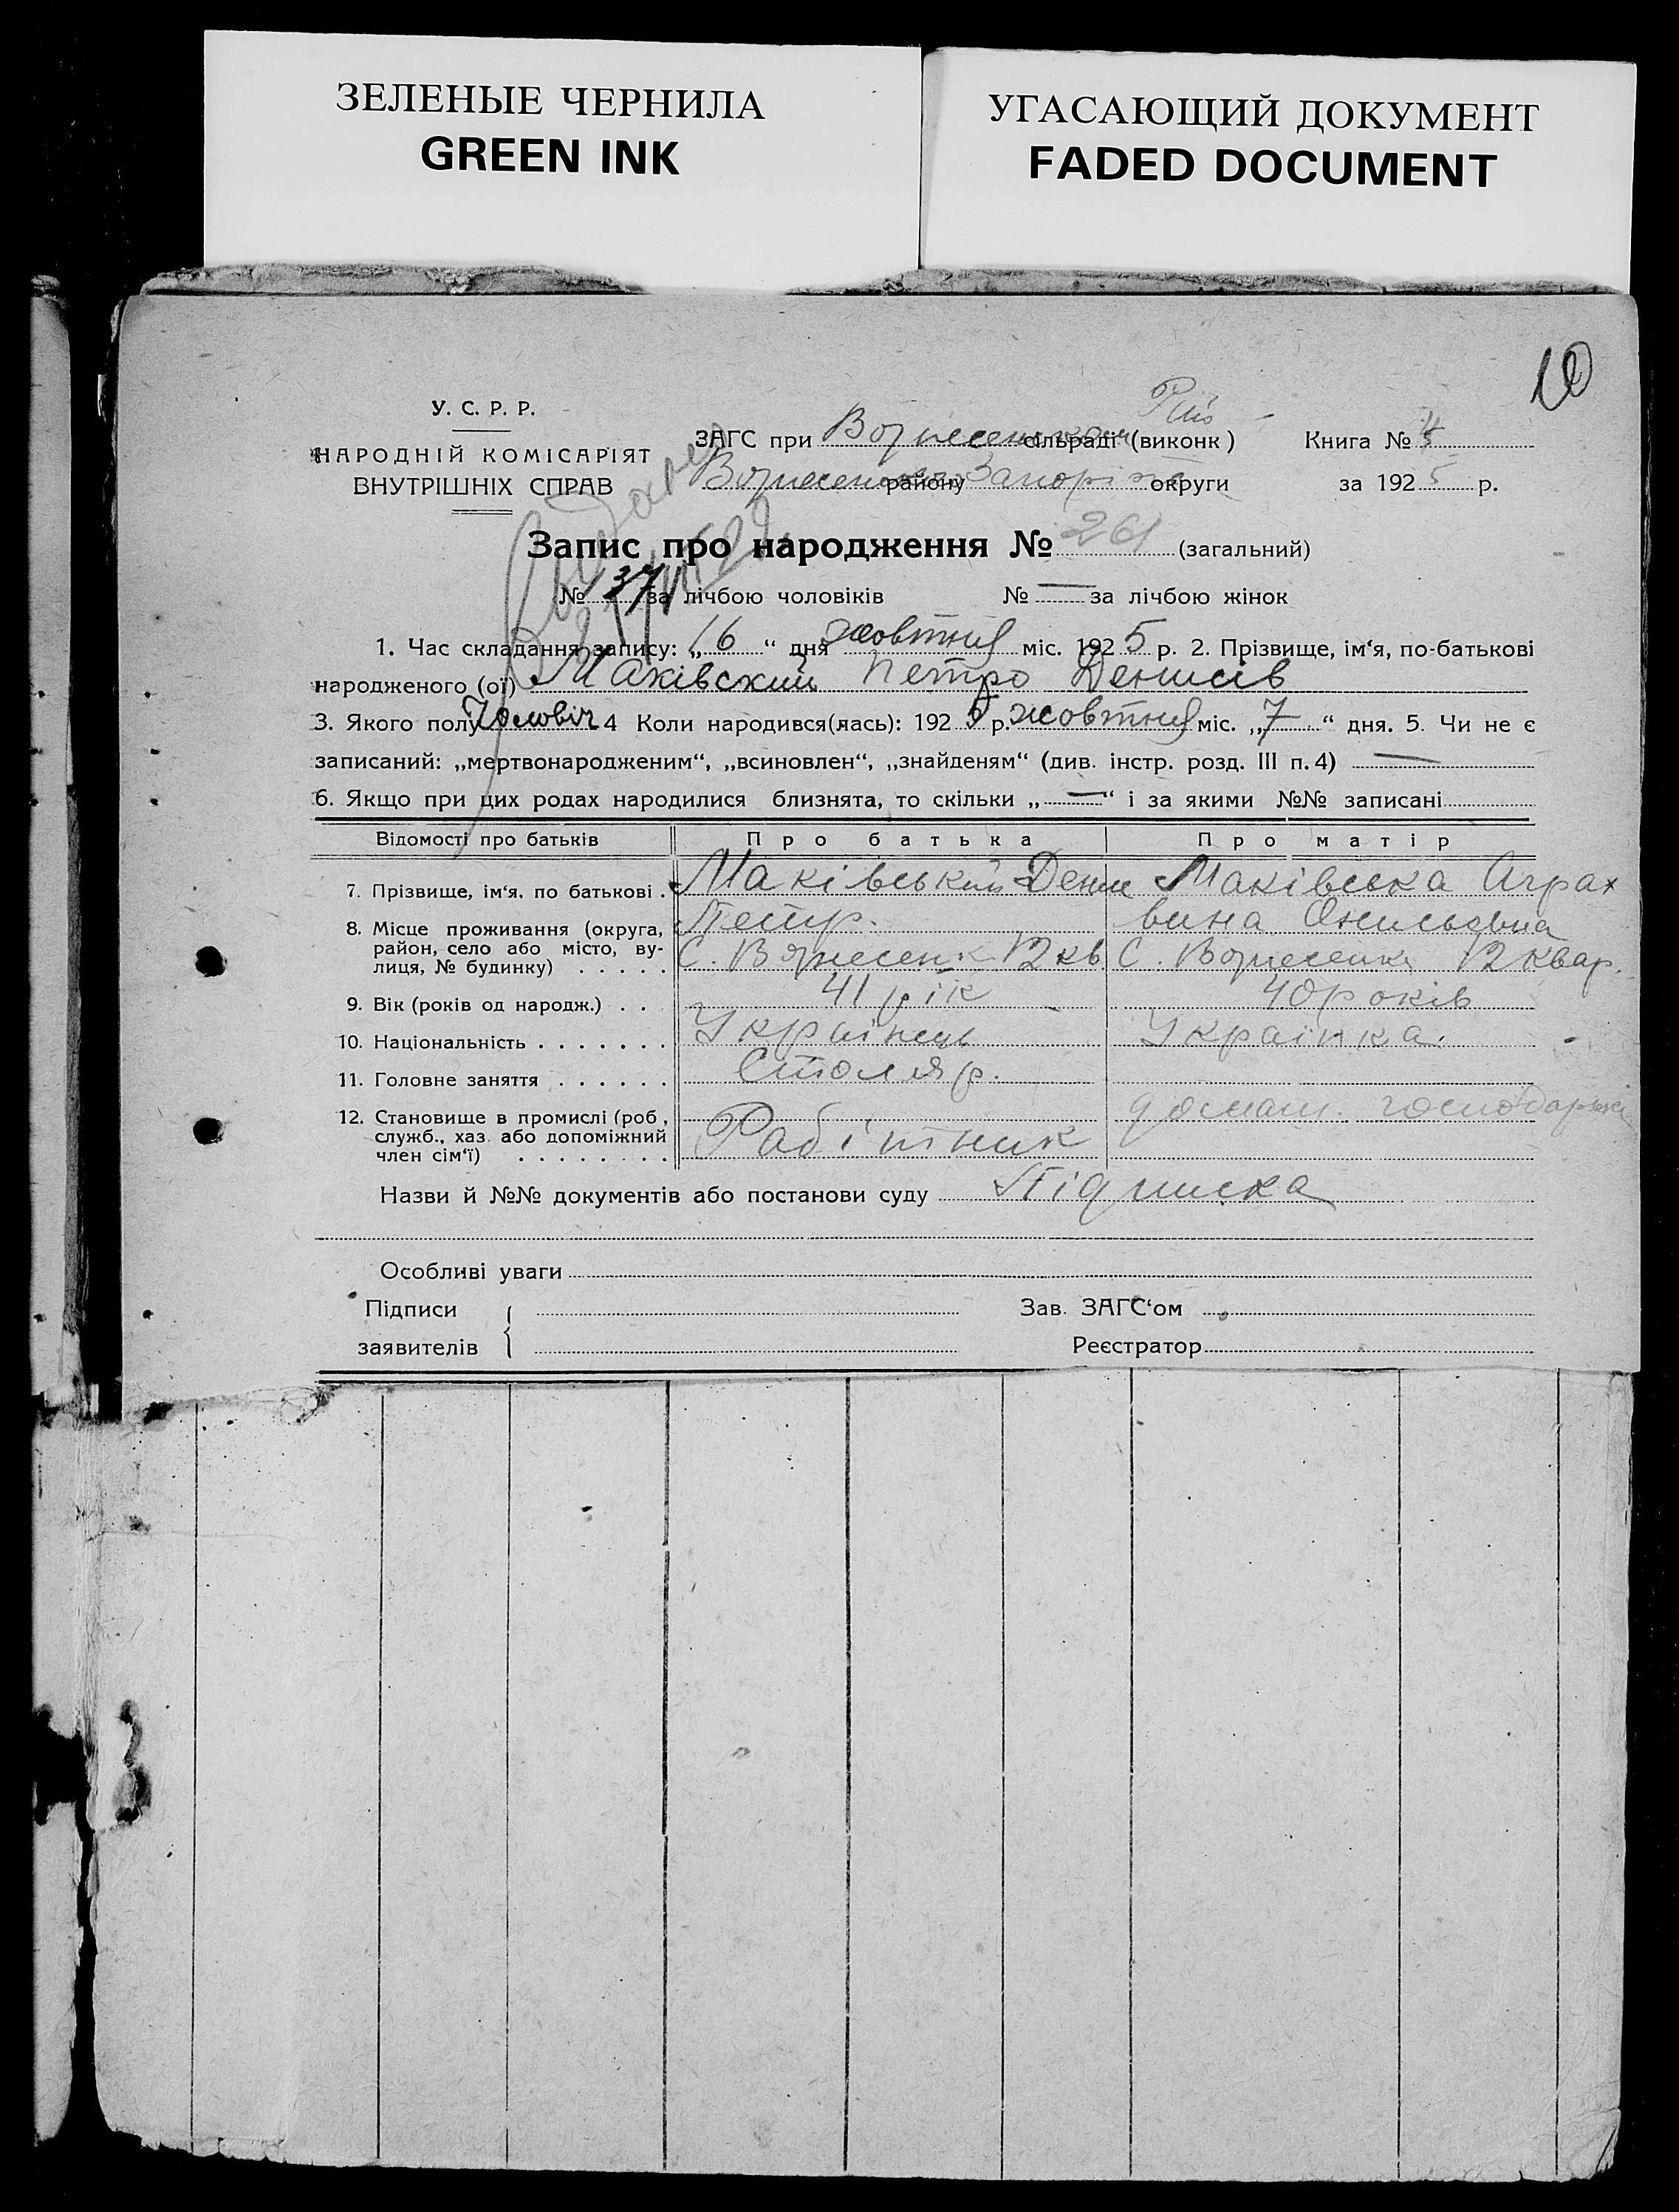 ЗЕЛЕНЫЕ ЧЕРНИЛА
GREEN INK
УГАСАЮЩИЙ ДОКУМЕНТ
FADED DOCUMENT
10
У. С. Р. Р.
НАРОДНІЙ КОМІСАРІЯТ
ВНУТРІШНІХ СПРАВ
ЗАГС при Вознесенском сільраді (виконк) Книга №
Вознесенськ району Запоріж округи за 1925 р.
Запис про народження № 261 (загальний)
№ 137 за лічбою чоловіків № — за лічбою жінок
1. Час складання запису: „16“ дня жовтня міс. 1925 р. 2. Прізвище, ім‘я, по-батькові
народженого (ої) Маківский Петро Денисів
3. Якого полу Чоловіч 4 Коли народився(лась): 1925 р. жовтня міс. „7“ дня. 5. Чи не є
записаний: „мертвонародженим“, „всиновлен“, „знайденям“ (див. інстр. розд. III п. 4) —
6. Якщо при цих родах народилися близнята, то скільки „—“ і за якими №№ записані
Відомості про батьків Про батька Про матір
7. Прізвище, ім‘я, по батькові . Маківський Денис Маківська Аграх
Петр. вина Онисьовна
8. Місце проживання (округа,
район, село або місто, ву-
лиця, № будинку) . . . . . С. Вознесенк 12 кв. С. Вознесенка 12 квар.
9. Вік (років од народж.) . . 41 рік 40 років
10. Національність . . . . . . . Українець Українка.
11. Головне заняття . . . . . . Столяр.
домаш. господарка
12. Становище в промислі (роб,
служб., хаз. або допоміжний
член сім‘ї) . . . . . . . . Рабітник
Назви й №№ документів або постанови суду Підписка
Особливі уваги
Підписи Зав. ЗАГС‘ом
заявителів Реєстратор